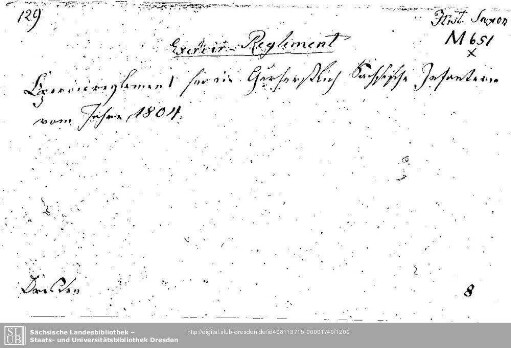 129
Hist. Saxon
M 651
x
Exercir-Reglement
Exercirreglement für die Churfürstlich Sächsische Infanterie
vom Jahre 1804.
Dresden
8
SLUB
Sächsische Landesbibliothek –
Staats- und Universitätsbibliothek Dresden